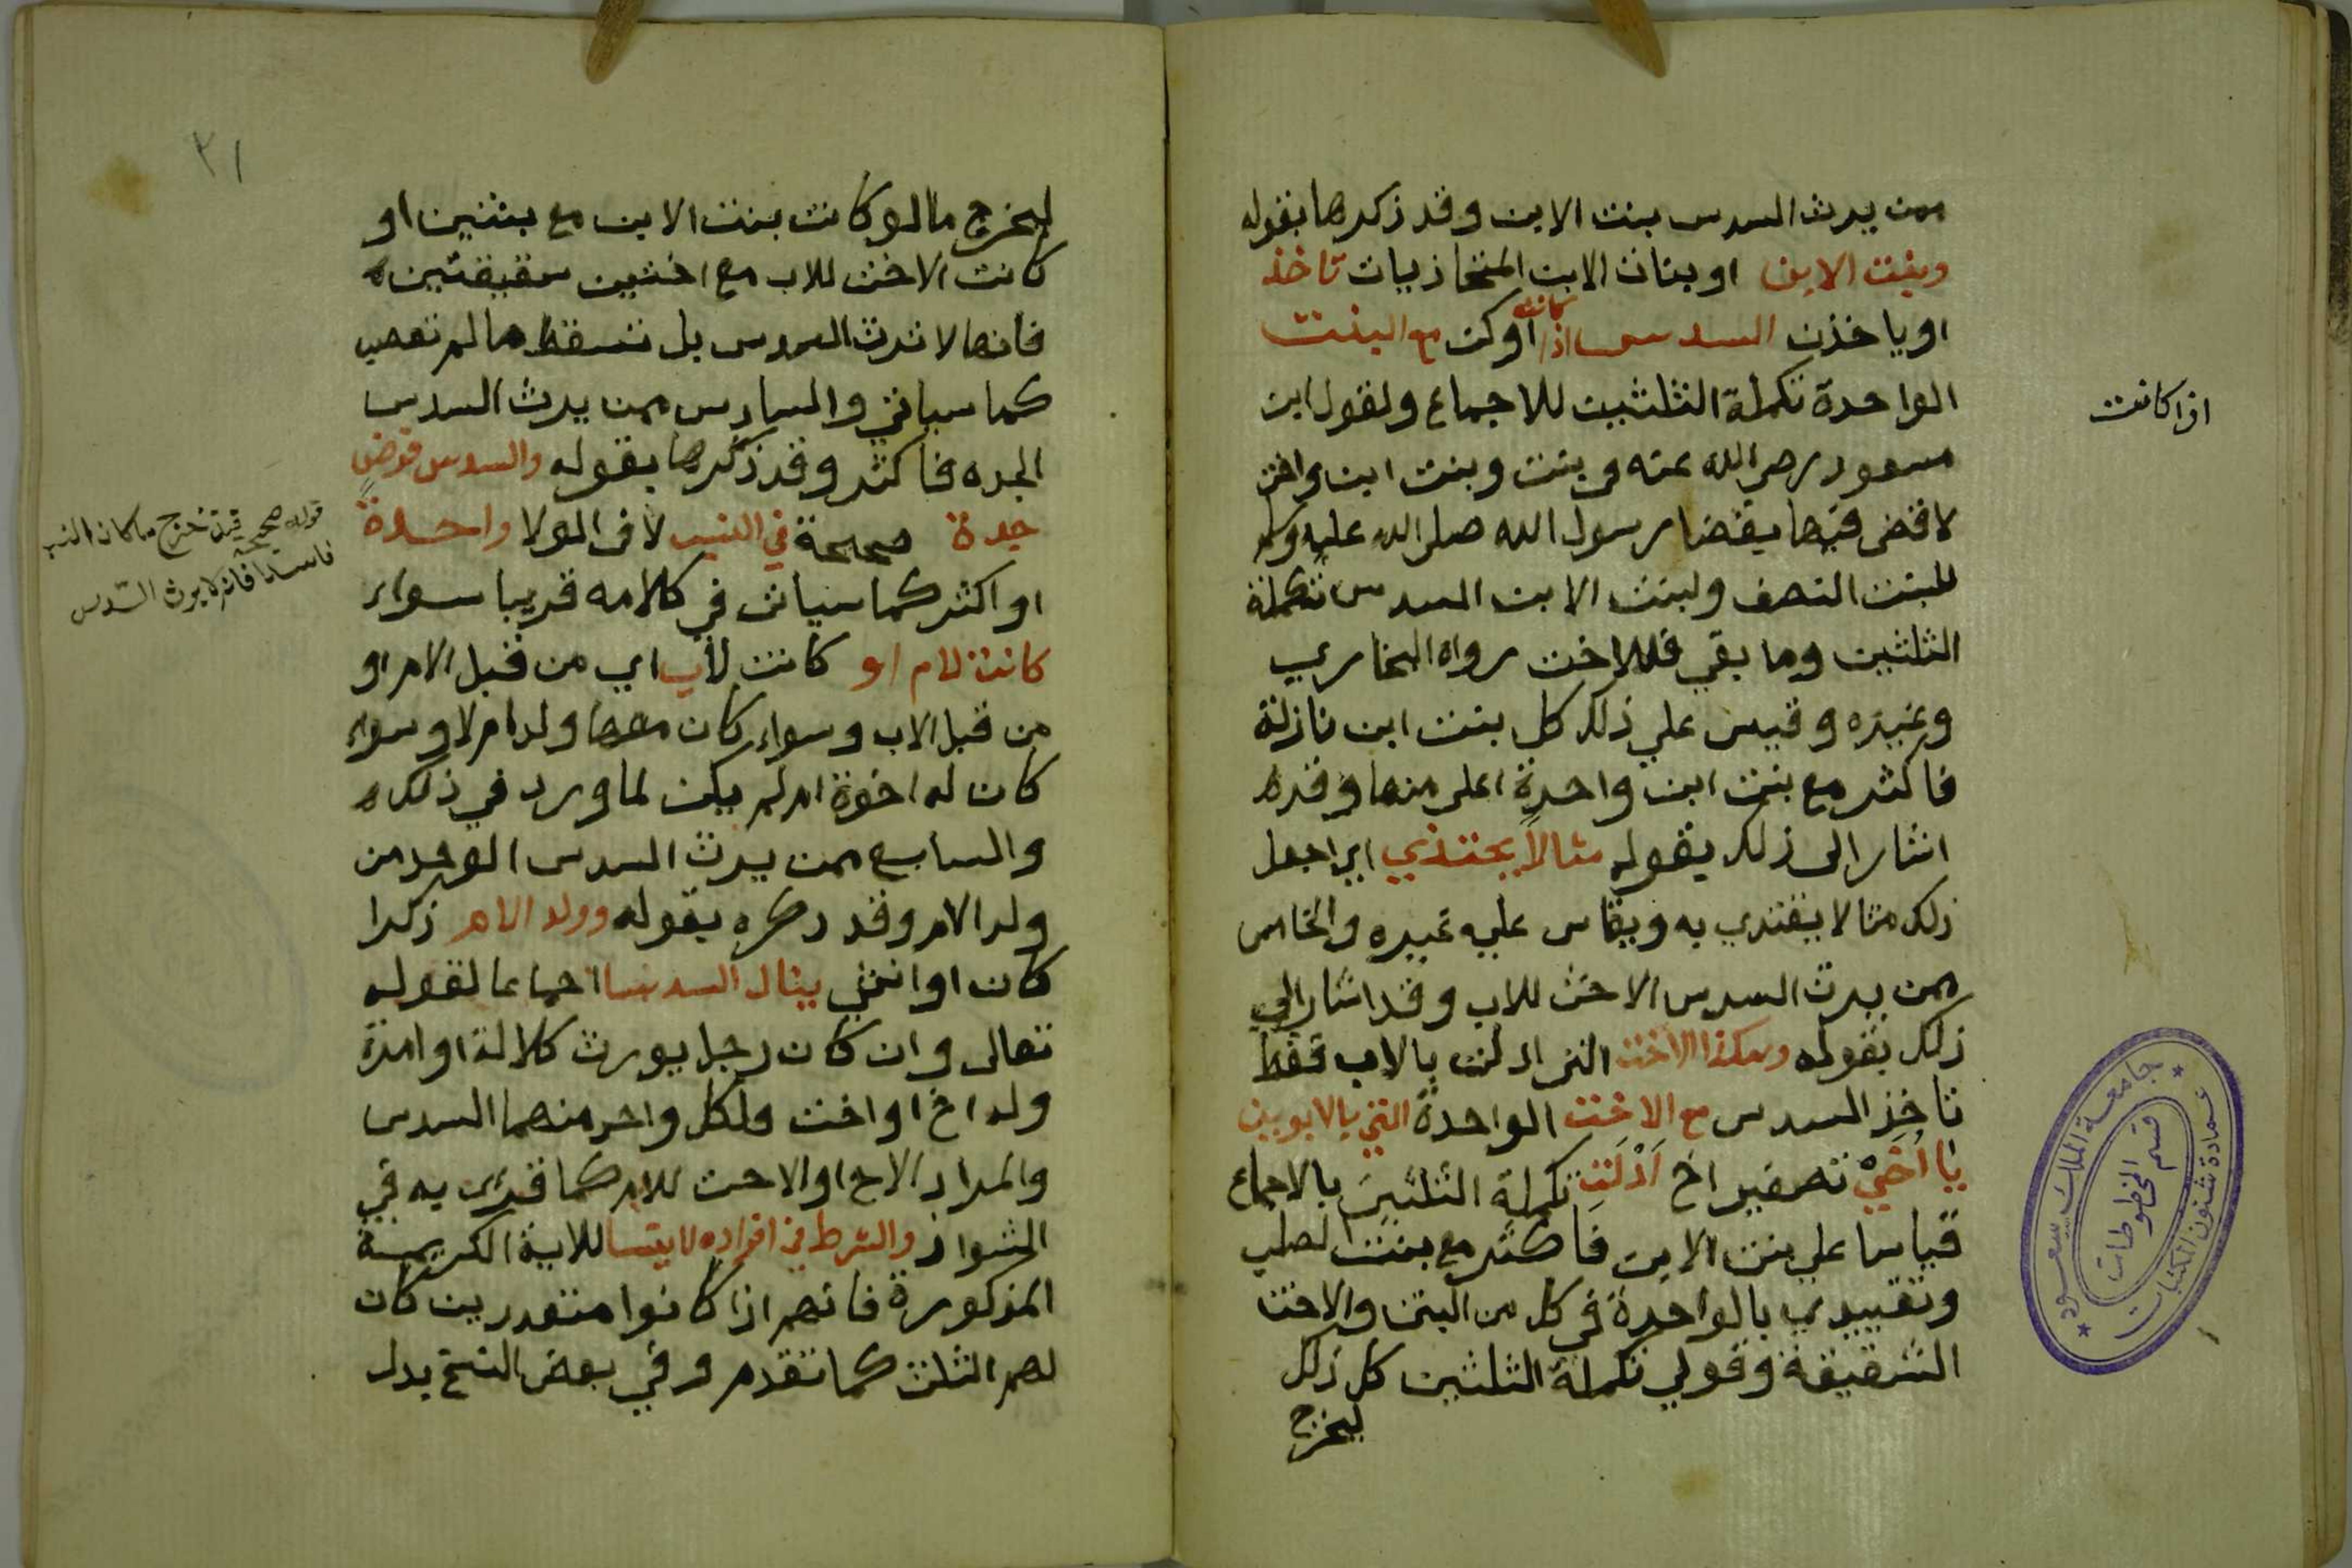 ممن يرث السدس بنت الابن وقد ذكرها بقوله
وبنت الابن او بنات الابن المتحاذيات تاخذ
او ياخذن السدس اذا كانت او كن مع البنت
اذا كانت
الواحدة تكملة الثلثين للاجماع ولقول ابن
مسعود رضي الله عنه في بنت وبنت ابن واخت
لاقضى فيها بقضا رسول الله صلى الله عليه وسلم
للبنت النصف ولبنت الابن السدس تكملة
الثلثين وما بقي فللاخت رواه البخاري
وغيره وقيس علي ذلك كل بنت ابن نازلة
فاكثر مع بنت ابن واحدة اعلى منها وقد
اشار الى ذلك بقوله مثالا يحتذي اي اجعل
ذلك مثالا يقتدي به ويقاس عليه غيره والخامس
ممن يرث السدس الاخت للاب وقد اشار الي
ذلك بقوله وهكذا الاخت التي ادلت بالاب فقط
تاخذ السدس مع الاخت الواحدة التي بالابوين
يا أخي تصغير اخ أدلت تكملة الثلثين بالاجماع
قياسا علي بنت الابن فاكثر مع بنت الصلب
وتقييدي بالواحدة في كل من البنت والاخت
الشقيقة وقولي تكملة الثلثين كل ذلك
ليخرج
جامعة الملك سعود
قسم المخطوطات
عمادة شئون المكتبات
٢١
ليخرج ما لو كانت بنت الابن مع بنتين او
كانت الاخت للاب مع اختين شقيقتين
فانها لا ترث السدس بل تسقط ما لم تعصب
كما سياتي والسادس ممن يرث السدس
الجده فاكثر وقد ذكرها بقوله والسدس فرض
جدة صحيحة في النسب لا في الولا واحدة
قوله صحيحة قيد خرج ما كان النسب
فاسدا فانه لا يرث السدس
او اكثر كما سياتي في كلامه قريبا سواء
كانت لام او كانت لأب اي من قبل الام او
من قبل الاب وسواء كان معها ولد ام لا وسواء
كان له اخوة ام لم يكن لما ورد في ذلك
والسابع ممن يرث السدس الواحد من
ولد الام وقد ذكره بقوله وولد الام ذكرا
كان او انثي ينال السدسا اجماعا لقوله
تعالى وان كان رجل يورث كلالة او امراة
وله اخ او اخت فلكل واحد منهما السدس
والمراد الاخ او الاخت للام كما قرئ به في
الشواذ والشرط في افراده لا ينسا للاية الكريمة
المذكورة فانهم اذا كانوا متعددين كان
لهم الثلث كما تقدم وفي بعض النسخ بدل